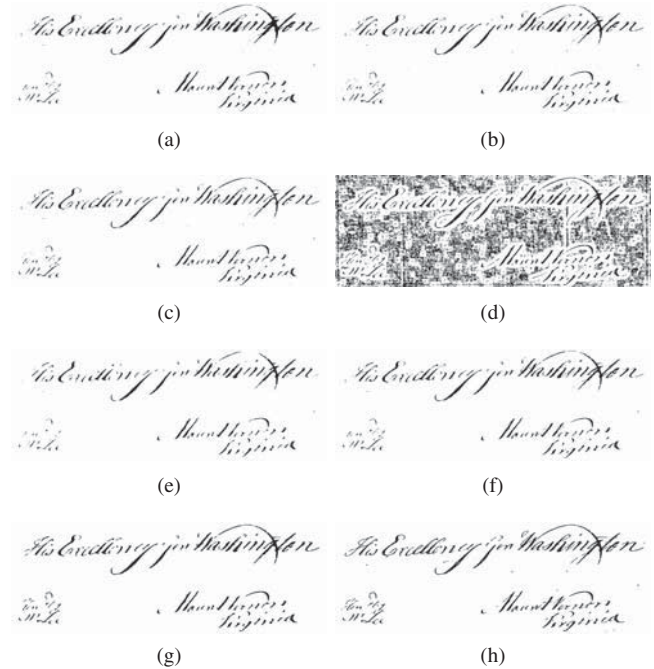 His Excellency Gen Washington
Mount Vernon
Virginia
(a)
His Excellency Gen Washington
Mount Vernon
Virginia
(b)
His Excellency Gen Washington
Mount Vernon
Virginia
(c)
His Excellency Gen Washington
Mount Vernon
Virginia
(d)
His Excellency Gen Washington
Mount Vernon
Virginia
(e)
His Excellency Gen Washington
Mount Vernon
Virginia
(f)
His Excellency Gen Washington
Mount Vernon
Virginia
(g)
His Excellency Gen Washington
Mount Vernon
Virginia
(h)